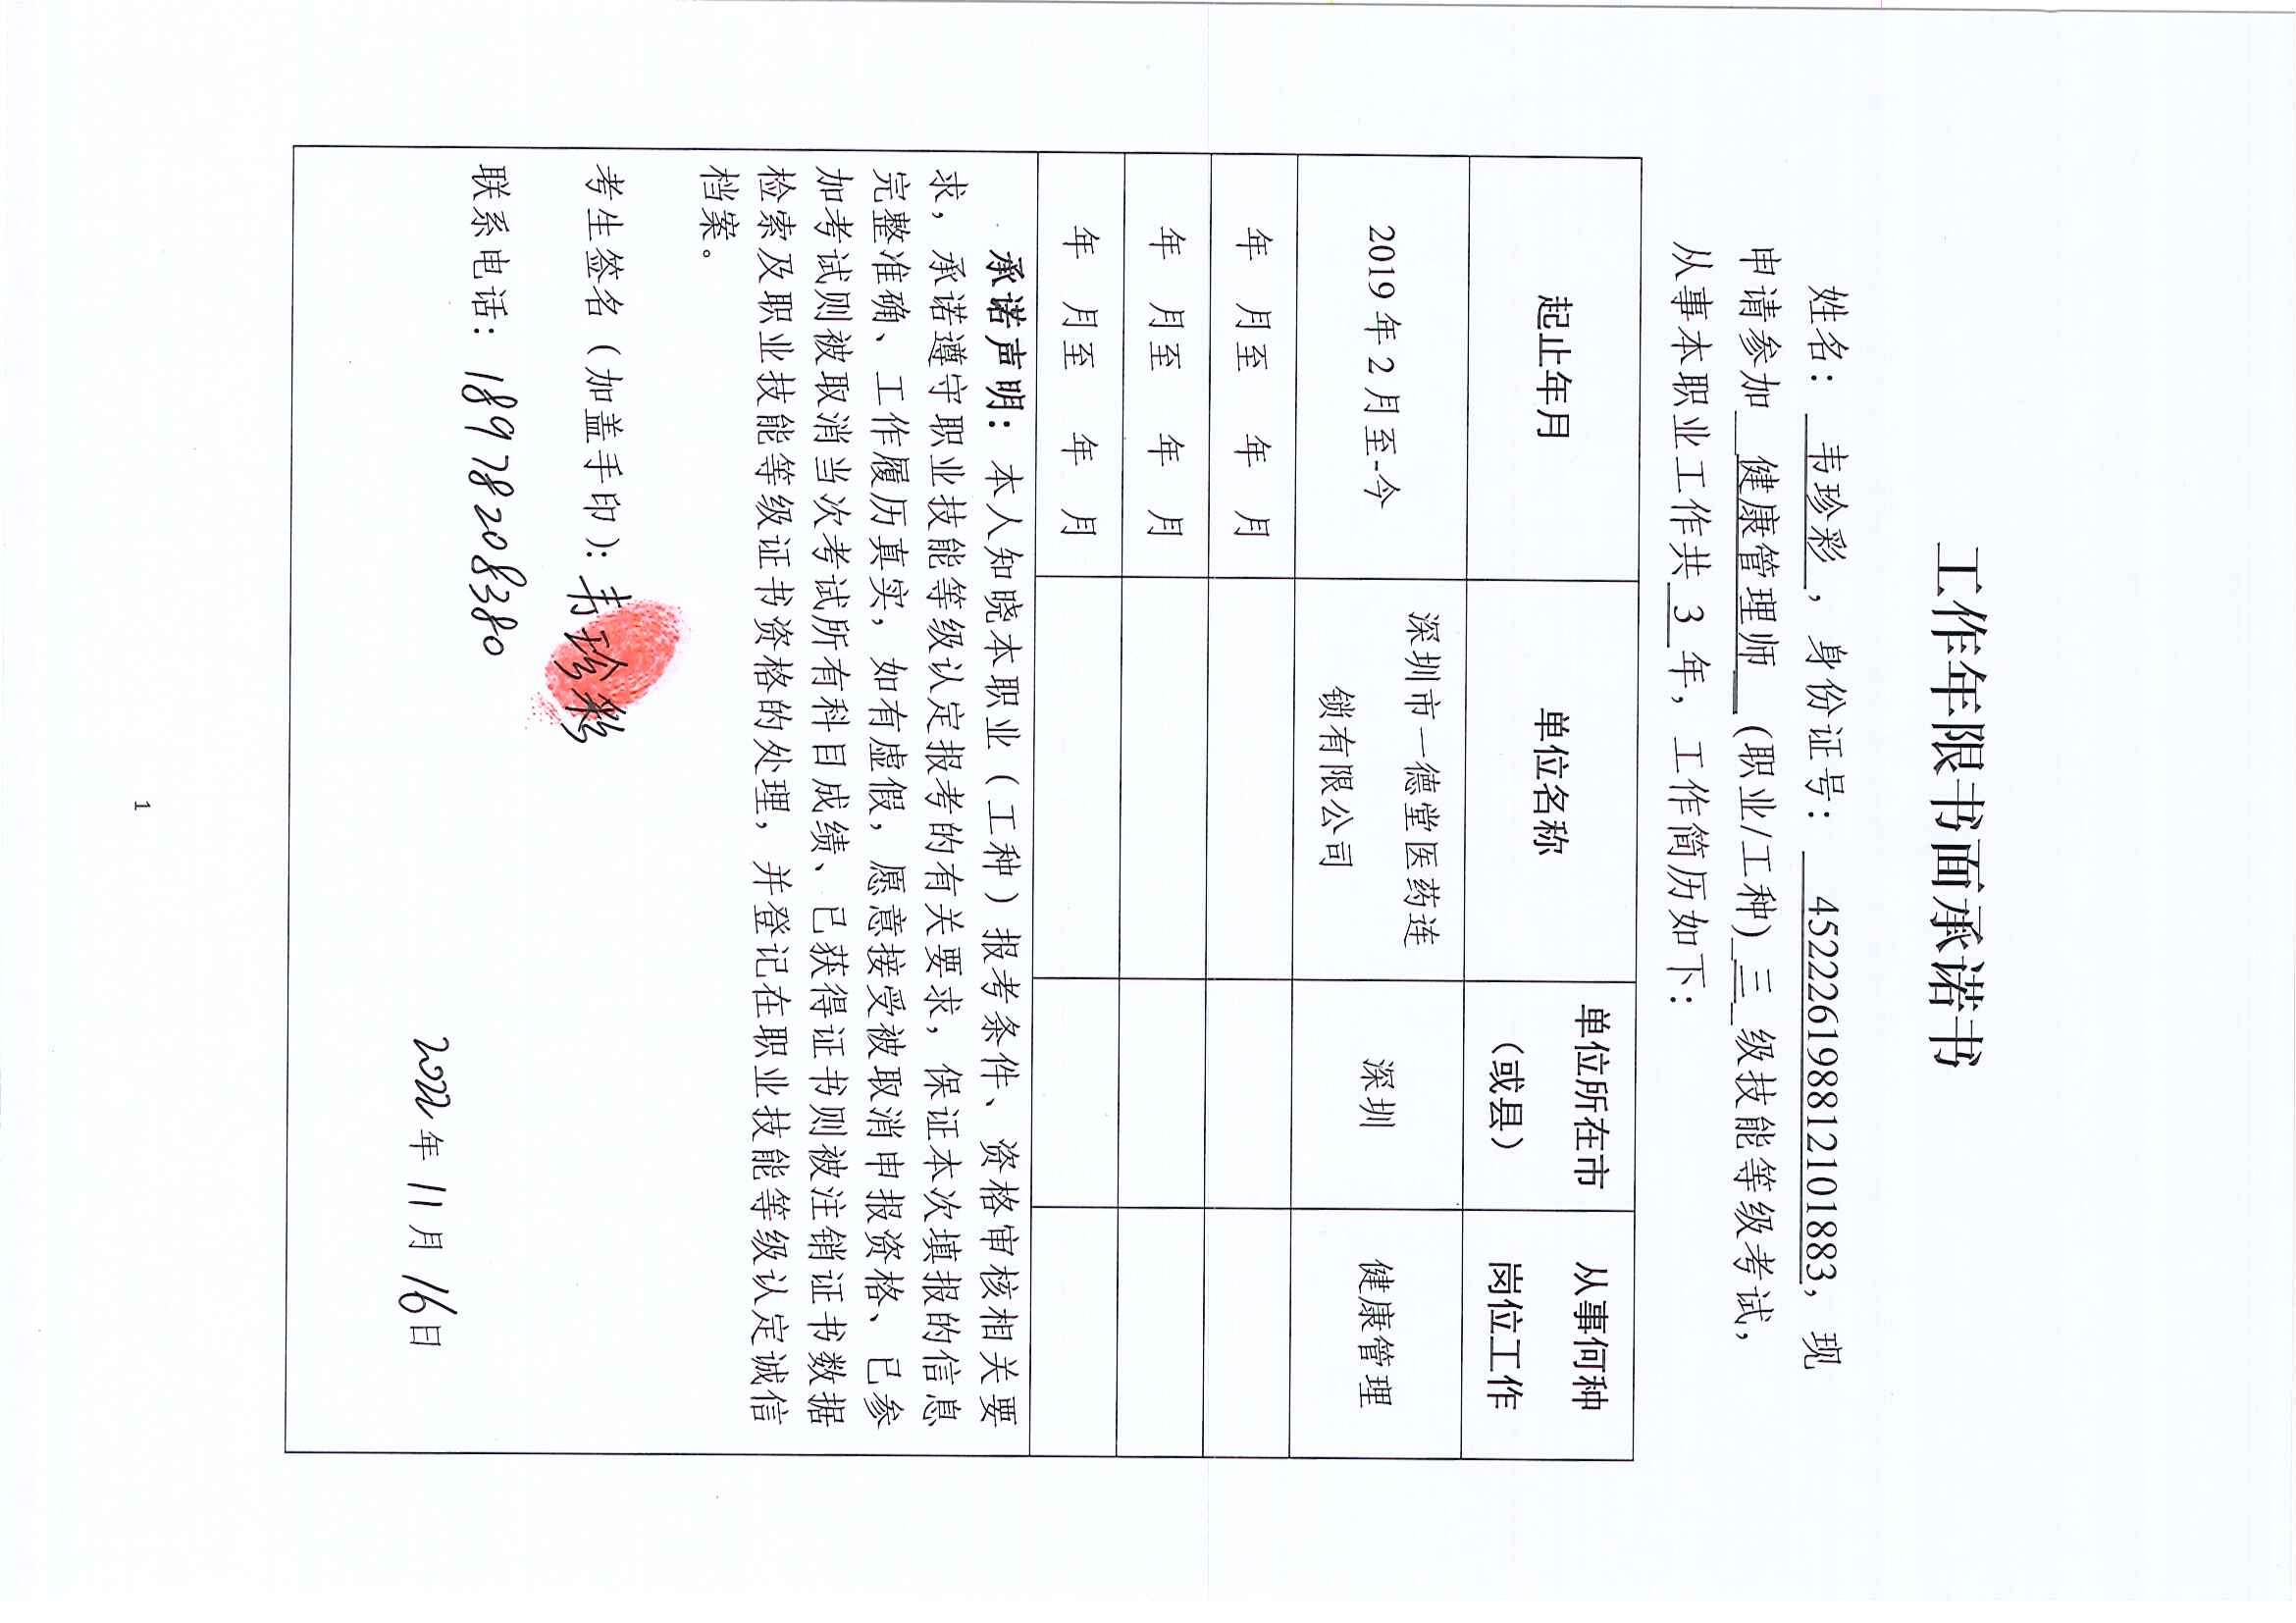 工作年限书面承诺书
姓名： 韦珍彩 ， 身份证号： 452226198812101883， 现
申请参加 健康管理师 (职业/工种) 三 级技能等级考试，
从事本职业工作共 3 年，工作简历如下：
起止年月 单位名称 单位所在市（或县） 从事何种岗位工作
2019 年 2 月至-今 深圳市一德堂医药连锁有限公司 深圳 健康管理
年 月至 年 月
年 月至 年 月
年 月至 年 月
承诺声明：本人知晓本职业（工种）报考条件、资格审核相关要
求，承诺遵守职业技能等级认定报考的有关要求，保证本次填报的信息
完整准确、工作履历真实，如有虚假，愿意接受被取消申报资格、已参
加考试则被取消当次考试所有科目成绩、已获得证书则被注销证书数据
检索及职业技能等级证书资格的处理，并登记在职业技能等级认定诚信
档案。
考生签名（加盖手印）：韦珍彩
联系电话：18978208380
2022年 11月 16日
1